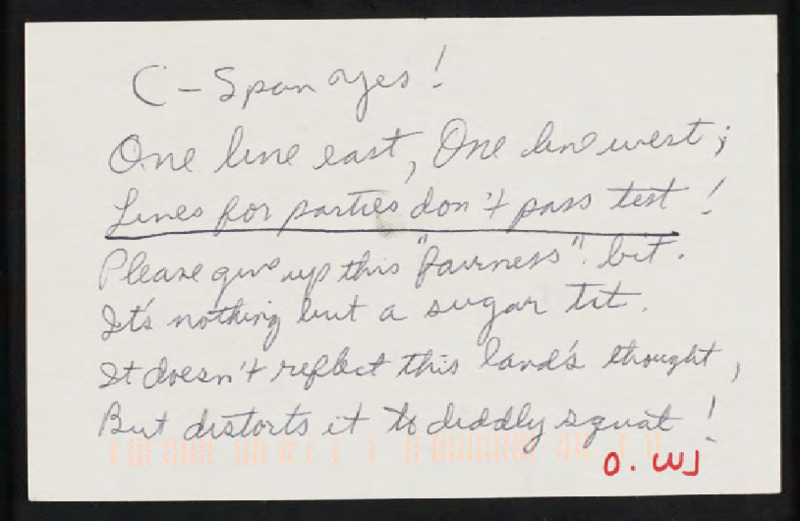 C-Span ayes!
One line east, One line west;
Lines for parties don't pass test!
Please give up this "fairness" bit.
It's nothing but a sugar tit.
It doesn't reflect this land's thought,
But distorts it to diddly squat!
O. W.